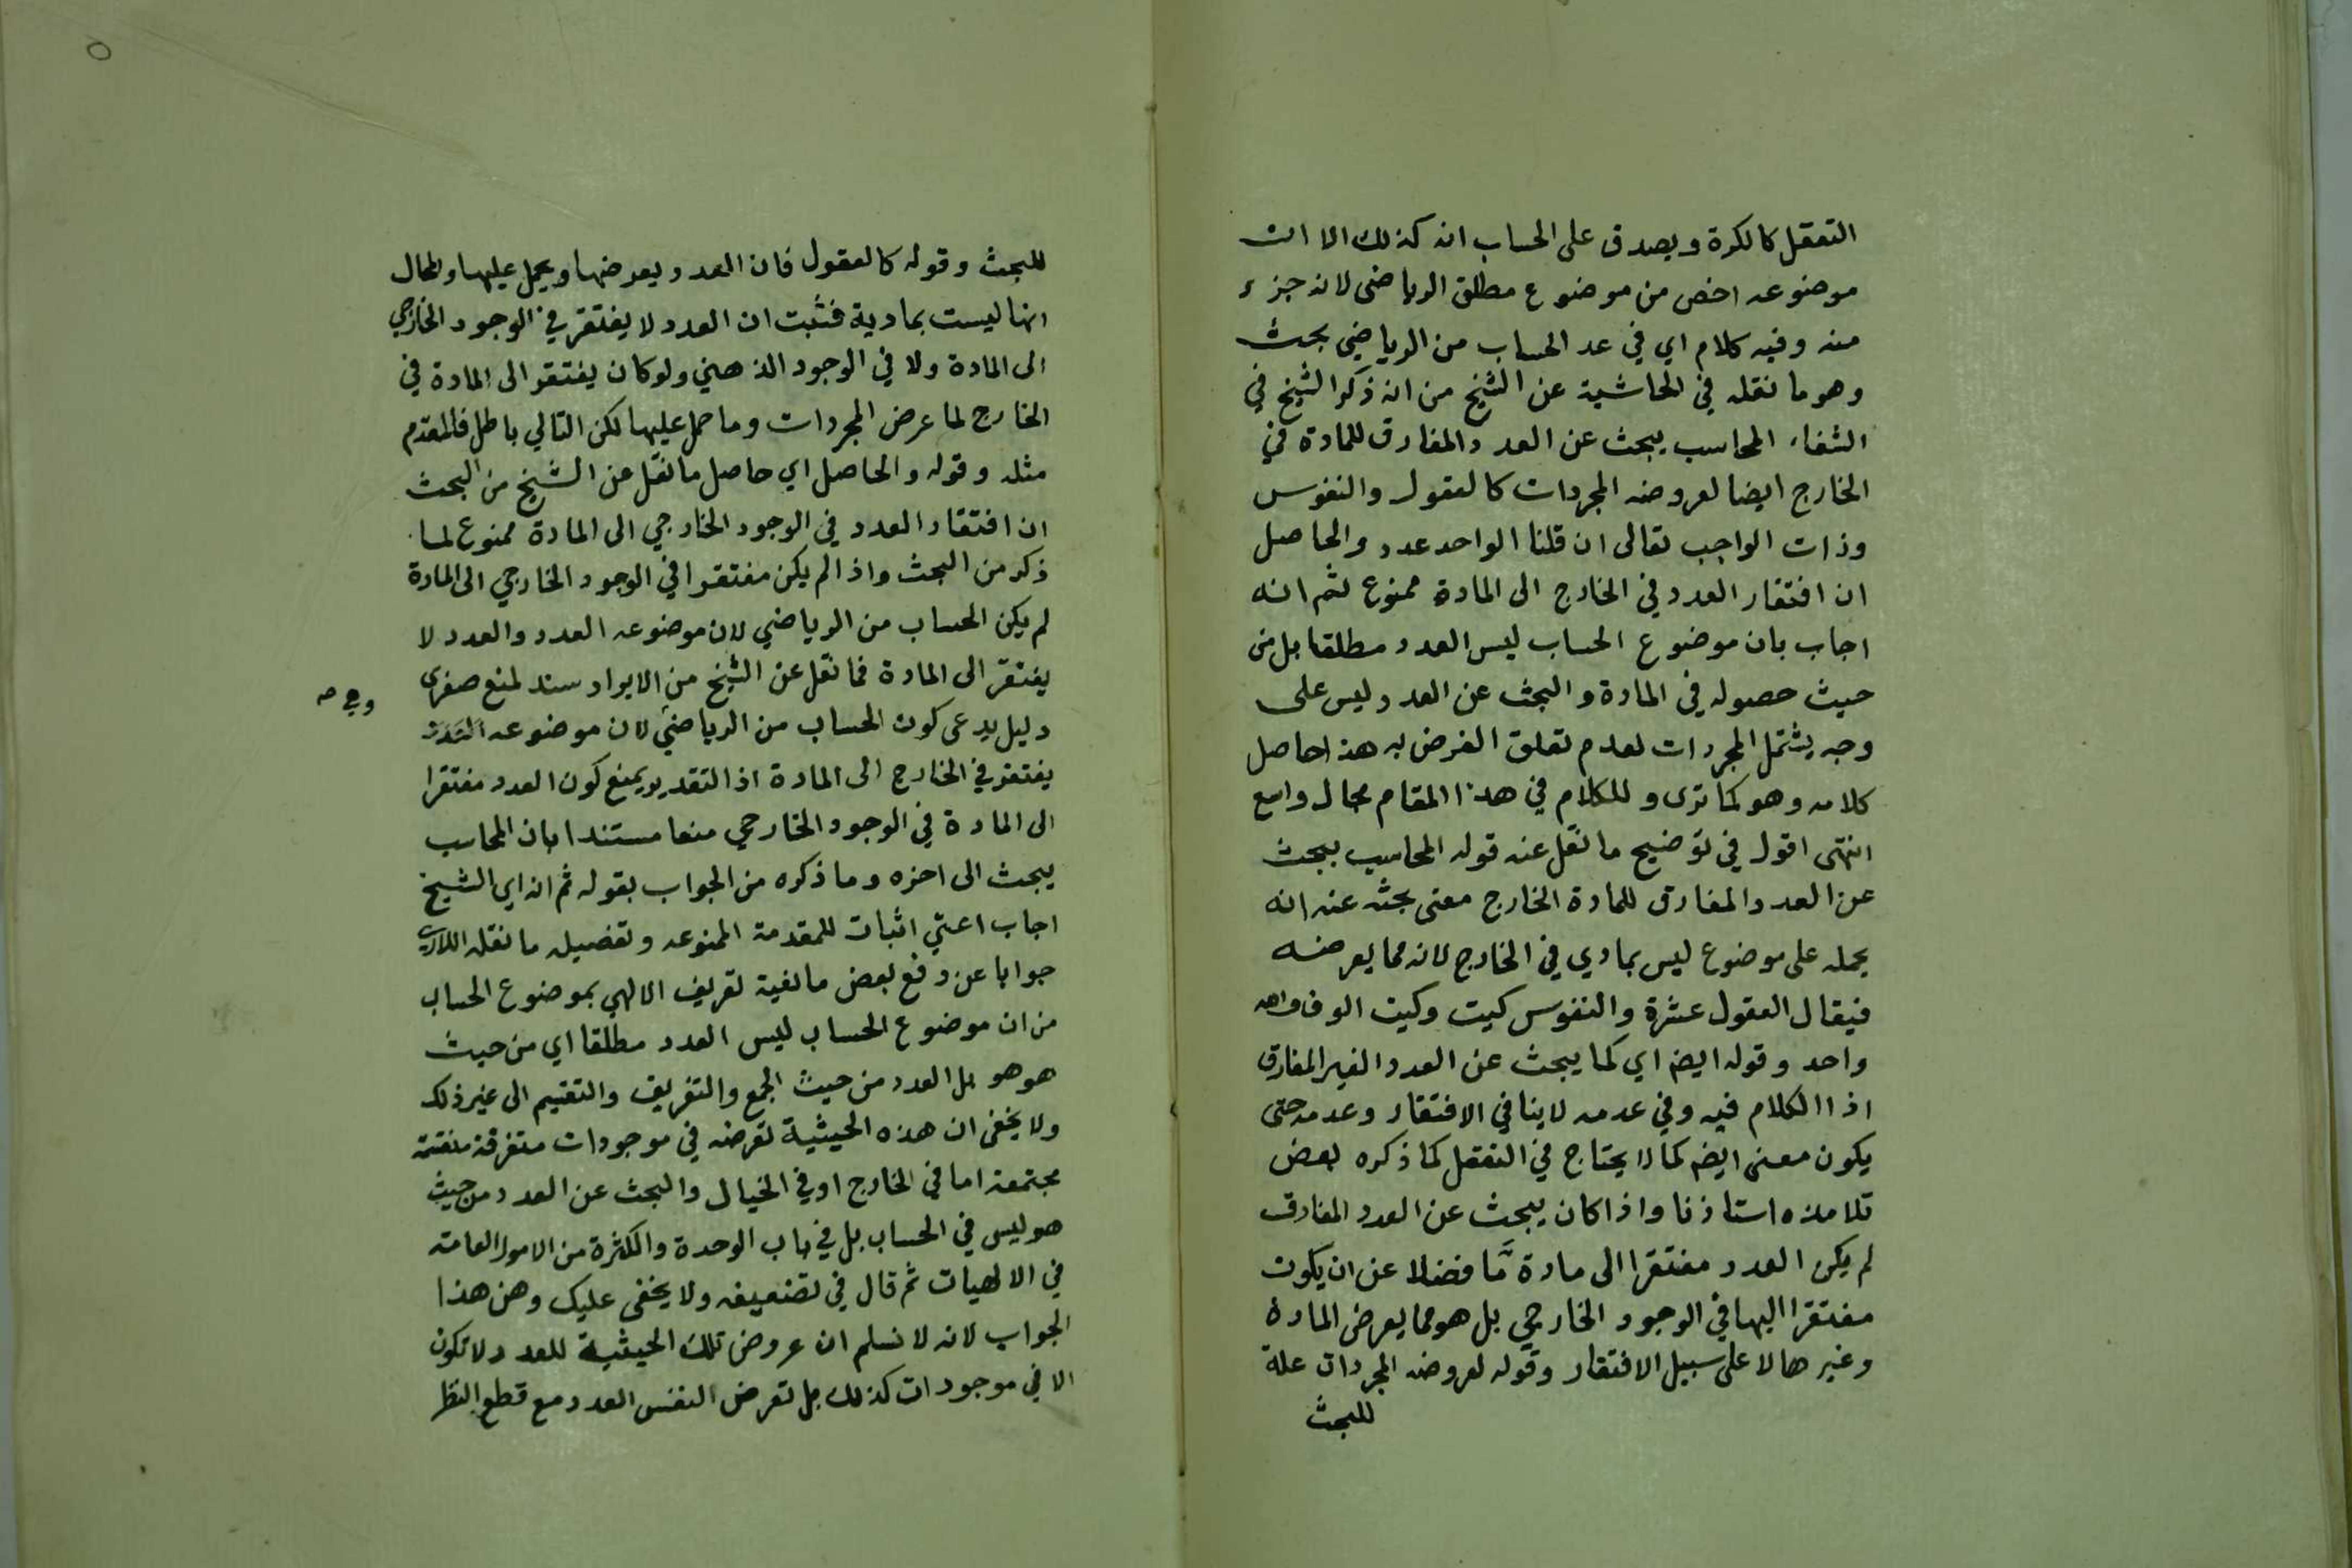 التعقل كالكرة ويصدق على الحساب انه كذلك الا ان
موضوعه اخص من موضوع مطلق الرياضي لانه جزء
منه وفيه كلام اي في عد الحساب من الرياضي بحث
وهو ما نقله في الحاشية عن الشيخ من انه ذكر الشيخ في
الشفاء المحاسب يبحث عن العدد المفارق للمادة في
الخارج ايضا لعروضه المجردات كالعقول والنفوس
وذات الواجب تعالى ان قلنا الواحد عدد والحاصل
ان افتقار العدد في الخارج الى المادة ممنوع ثم انه
اجاب بان موضوع الحساب ليس العدد مطلقا بل من
حيث حصوله في المادة والبحث عن العدد ليس على
وجه يشتمل المجردات لعدم تعلق الغرض به هذا حاصل
كلامه وهو كما ترى وللكلام في هذا المقام مجال واسع
انتهى اقول في توضيح ما نقل عنه قوله المحاسب يبحث
عن العدد المفارق للمادة الخارج معنى بحثه عنه انه
يحمله على موضوع ليس بمادي في الخارج لانه مما يعرضه
فيقال العقول عشرة والنفوس كيت وكيت الوف واحد
واحد وقوله ايضا اي كما يبحث عن العدد الغير المفارق
اذا الكلام فيه وفي عدمه لا ينافي الافتقار وعدمه حتى
يكون معنى ايضا كما لا يحتاج في التعقل كما ذكره بعض
تلامذه استاذنا واذا كان يبحث عن العدد المفارق
لم يكن العدد مفتقرا الى مادة مّا فضلا عن ان يكون
مفتقرا اليها في الوجود الخارجي بل هو مما يعرض المادة
وغيرها لا على سبيل الافتقار وقوله لعروضه المجردات علة
للبحث
للبحث وقوله كالعقول فان العدد يعرضها ويحمل عليها والحال
انها ليست بمادية فثبت ان العدد لا يفتقر في الوجود الخارجي
الى المادة ولا في الوجود الذهني ولو كان يفتقر الى المادة في
الخارج لما عرض المجردات وما حمل عليها لكن التالي باطل فالمقدم
مثله وقوله والحاصل اي حاصل ما نقل عن الشيخ من البحث
ان افتقار العدد في الوجود الخارجي الى المادة ممنوع لما
ذكر من البحث واذا لم يكن مفتقرا في الوجود الخارجي الى المادة
لم يكن الحساب من الرياضي لان موضوعه العدد والعدد لا
يفتقر الى المادة فما نقل عن الشيخ من الايراد سند لمنع صغرى
دليل يدعى كون الحساب من الرياضي لان موضوعه
يفتقر في الخارج الى المادة اذ التقدير يمنع كون العدد مفتقرا
الى المادة في الوجود الخارجي منعا مستندا بان المحاسب
يبحث الى اخره وما ذكره من الجواب بقوله ثم انه اي الشيخ
اجاب اعني اثبات للمقدمة الممنوعه وتفصيله ما نقله اللاري
جوابا عن دفع بعض مانعية تعريف الالهي بموضوع الحساب
من ان موضوع الحساب ليس العدد مطلقا اي من حيث
هو هو بل العدد من حيث الجمع والتفريق والتقسيم الى غير ذلك
ولا يخفى ان هذه الحيثية تعرضه في موجودات متفرقة منقسمة
مجتمعة اما في الخارج او في الخيال والبحث عن العدد من حيث
هو ليس في الحساب بل في باب الوحدة والكثرة من الامور العامة
في الالهيات ثم قال في تضعيفه ولا يخفى عليك وهن هذا
الجواب لانه لا نسلم ان عروض تلك الحيثية للعدد لا تكون
الا في موجودات كذلك بل تعرض النفس العدد مع قطع النظر